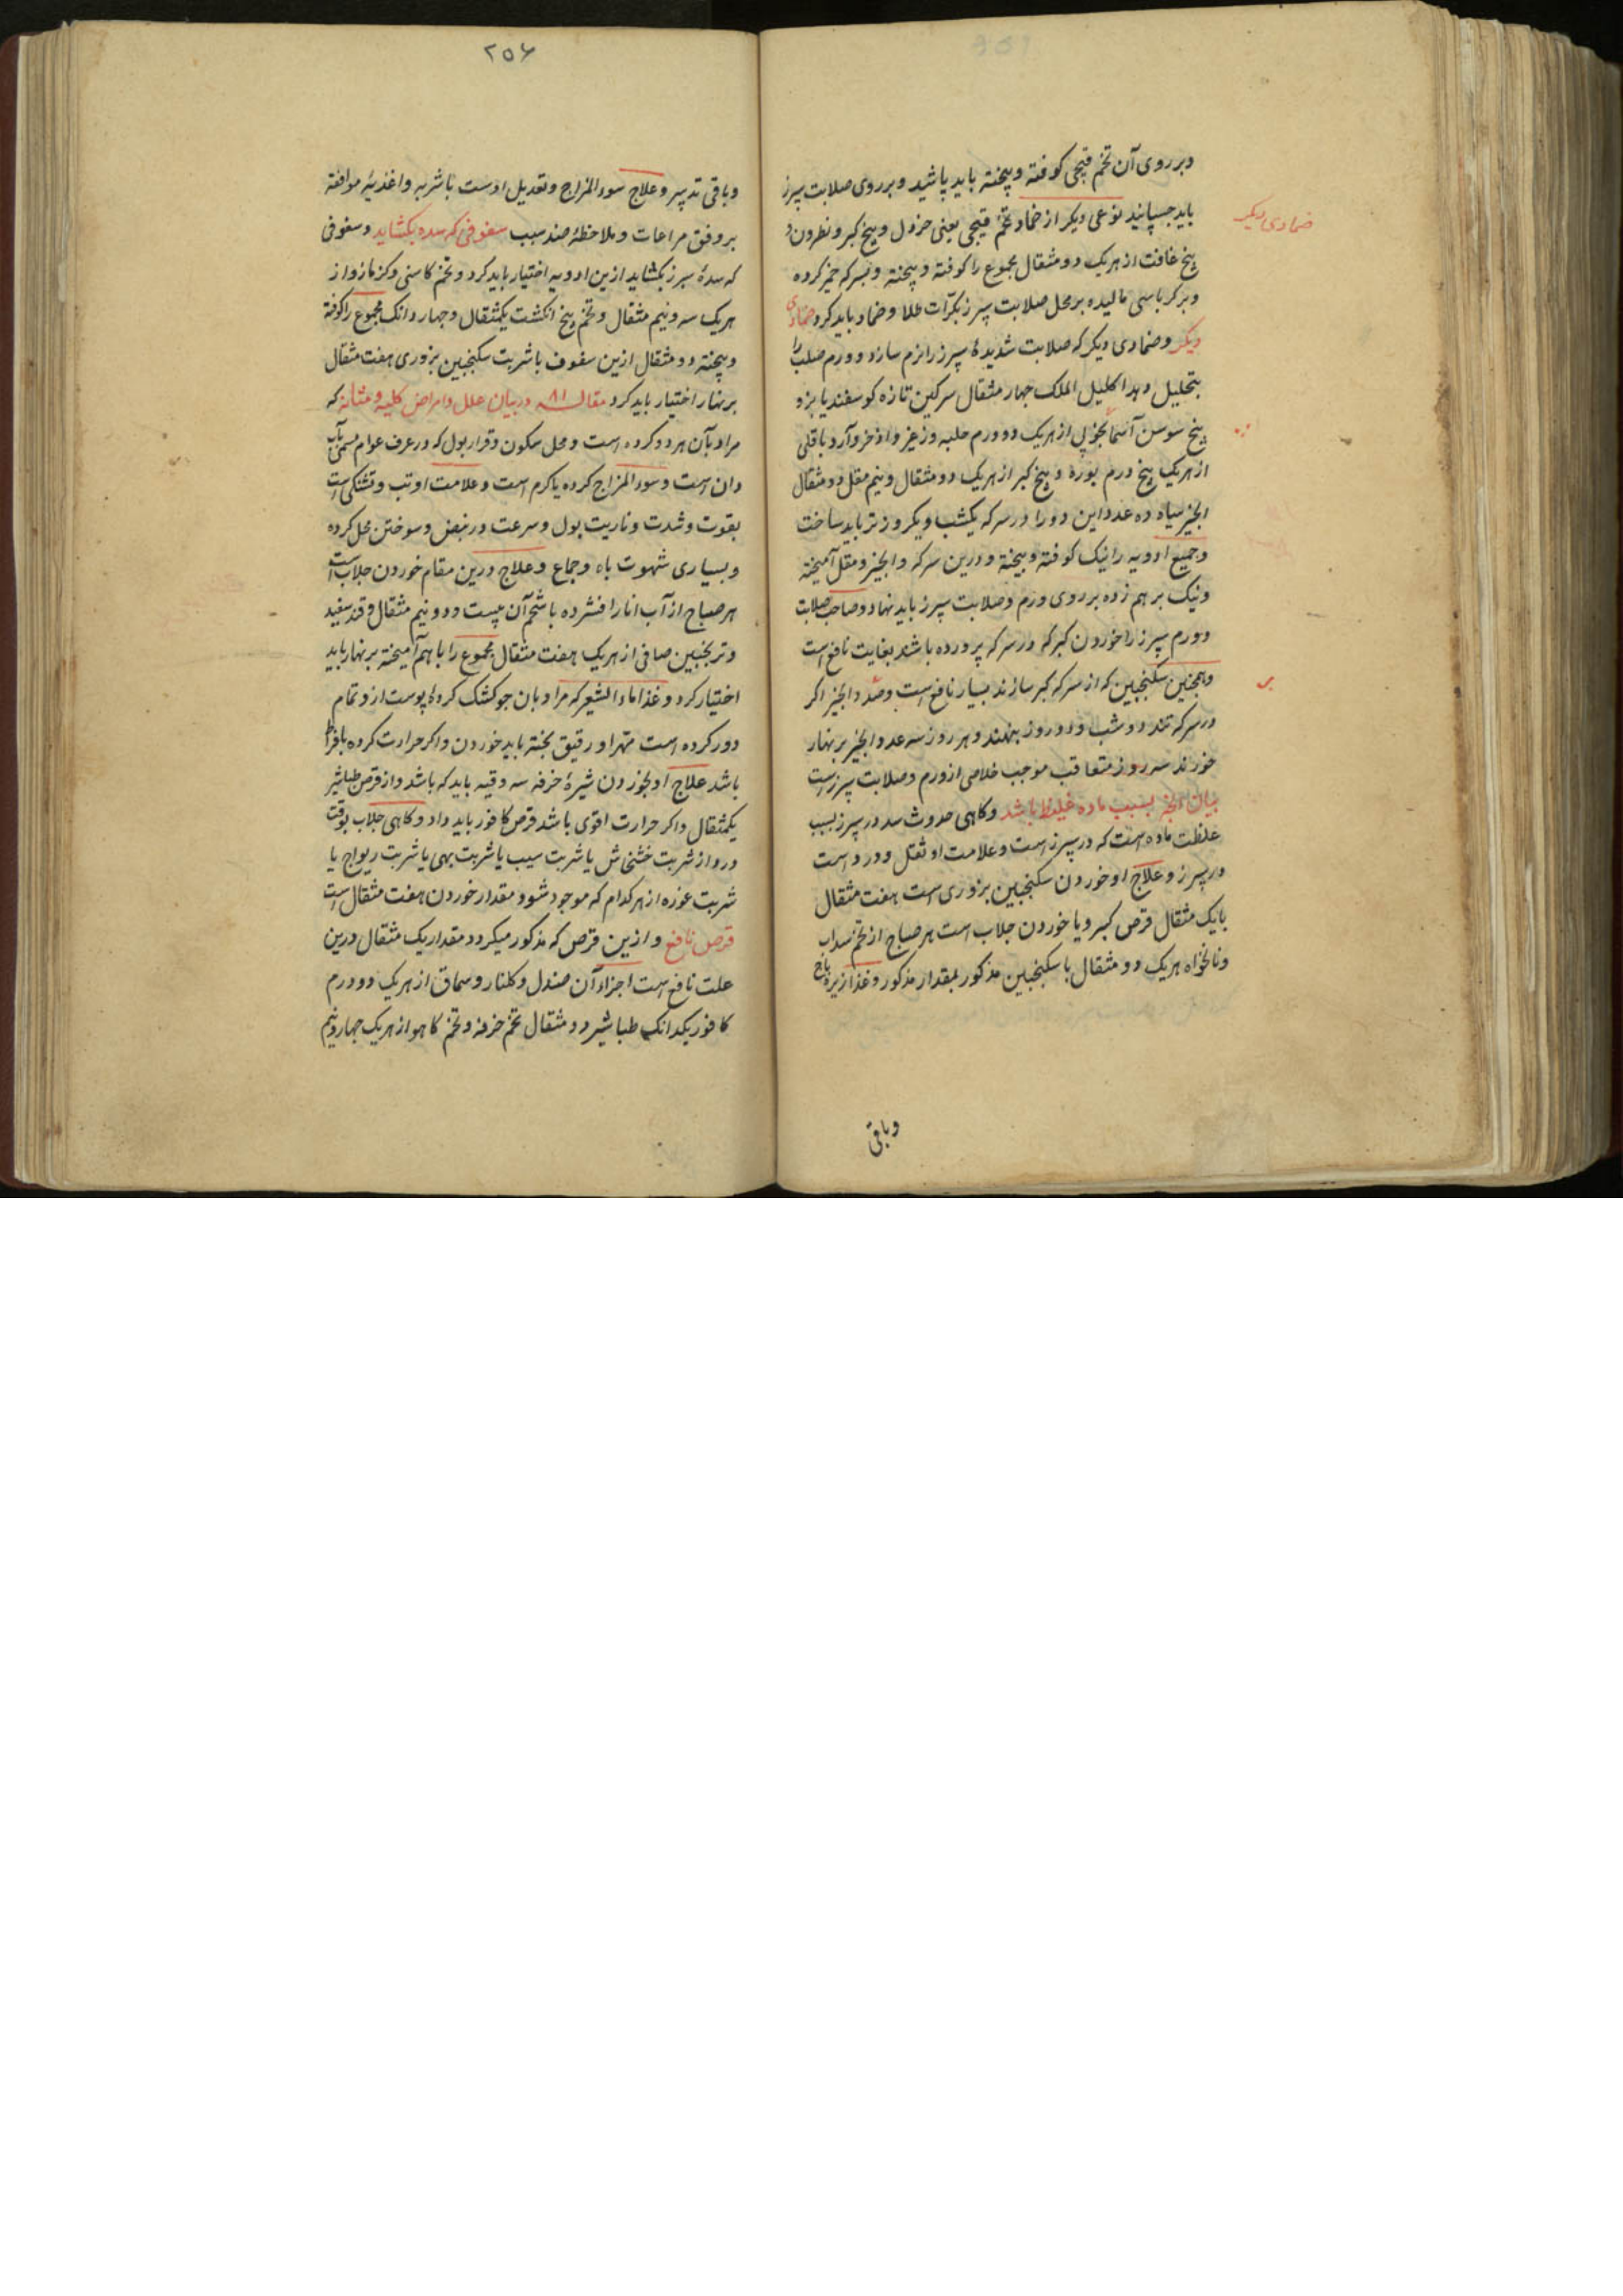 وبر روی آن تخم قیچی کوفته و پیخته باید پاشید و بر روی صلابت سپرز
باید جسپانید نوعی دیکر از ضماد تخم قیچی یعنی خردل و بیخ کبر و نطرون و
ضمادی دیکر
بیخ غافت از هریک دو مثقال مجموع را کوفته و پیخته و بسرکه خمیر کرده
و بر کرباسی مالیده بر محل صلابت سپرز بکرّات طلا و ضماد باید کرد ضمادی
دیکر و ضمادی دیکر که صلابت شدیدهٔ سپرز را نرم سازد و ورم صلب را
بتحلیل دهد اکلیل الملک چهار مثقال سرکین تازه کوسفند یا بز و
بیخ سوسن آسمانجونی از هریک دو درم حلبه و اذخر و آرد باقلی
از هریک پنج درم بوره و بیخ کبر از هریک دو مثقال و نیم مقل دو مثقال
انجیر سیاه ده عدد این دو را در سرکه یکشب و یکروز تر باید ساخت
و جمیع ادویه را نیک کوفته و بیخته و درین سرکه و انجیر و مقل آمیخته
و نیک بر هم زده بر روی ورم و صلابت سپرز باید نهاد و صاحب صلابت
و ورم سپرز را خوردن کبر که در سرکه پرورده باشند بغایت نافع است
و همچنین سکنجبین که از سرکه کبر سازند بسیار نافع است و انجیر اکر
در سرکه تند دو شب و دو روز بنهند و هر روز سه عدد انجیر بر نهار
خورند سه روز متعاقب موجب خلاصی از ورم و صلابت سپرز است
بیان بسبب ماده غلیظ باشد و کاهی حدوث سده در سپرز بسبب
غلظت ماده است که در سپرز است و علامت او ثقل و درد است
در سپرز و علاج او خوردن سکنجبین بزوری است هفت مثقال
با یک مثقال قرص کبر و یا خوردن جلاب است هر صباح از تخم سداب
و نانخواه هریک دو مثقال با سکنجبین مذکور بمقدار مذکور و غذا زیره باج
وباقی
۲۵۶
وباقی تدبیر و علاج سوء المزاج و تعدیل اوست باشربه و اغذیهٔ موافقه
بر وفق مراعات و ملاحظهٔ ضد سبب سفوفی که سده بکشاید و سفوفی
که سدهٔ سپرز بکشاید ازین ادویه اختیار باید کرد و تخم کاسنی و کزمازو از
هریک سه و نیم مثقال و تخم پنج انکشت یکمثقال و چهار دانک مجموع را کوفته
و پیخته دو مثقال ازین سفوف با شربت سکنجبین بزوری هفت مثقال
بر نهار اختیار باید کرد مقاله ۸۱ در بیان علل و امراض کلیه و مثانه که
مراد بآن هر دو کرده است و محل سکون و قرار بول که در عرف عوام مسمی بآب
دان است و سوء المزاج کرده یا کرم است و علامت او تب و تشنکی است
بقوت و شدت و ناریت بول و سرعت در نبض و سوختن محل کرده
و بسیاری شهوت باه و جماع و علاج درین مقام خوردن جلاب است
هر صباح از آب انار افشرده با شحم آن بیست و دو و نیم مثقال و قند سفید
و ترنجبین صافی از هریک هفت مثقال مجموع را با هم آمیخته بر نهار باید
اختیار کرد و غذا ماء الشعیر که مراد بان جو کشک کرده پوست ازو تمام
دور کرده است مهرا و رقیق پخته باید خوردن و اکر حرارت کرده بافراط
باشد علاج او بخوردن شیرهٔ خرفه سه وقیه باید که باشد و از قرص طباشیر
یکمثقال و اکر حرارت اقوی باشد قرص کافور باید داد و کاهی جلاب بوقت
درد از شربت خشخاش یا شربت سیب یا شربت بهی یا شربت ریواج یا
شربت غوره از هرکدام که موجود شود و مقدار خوردن هفت مثقال است
قرص نافع و ازین قرص که مذکور میکردد مقدار یک مثقال درین
علت نافع است اجزاء آن صندل و کلنار و سماق از هریک دو درم
کافور یکدانک طباشیر دو مثقال تخم خرفه و تخم کاهو از هریک چهار و نیم